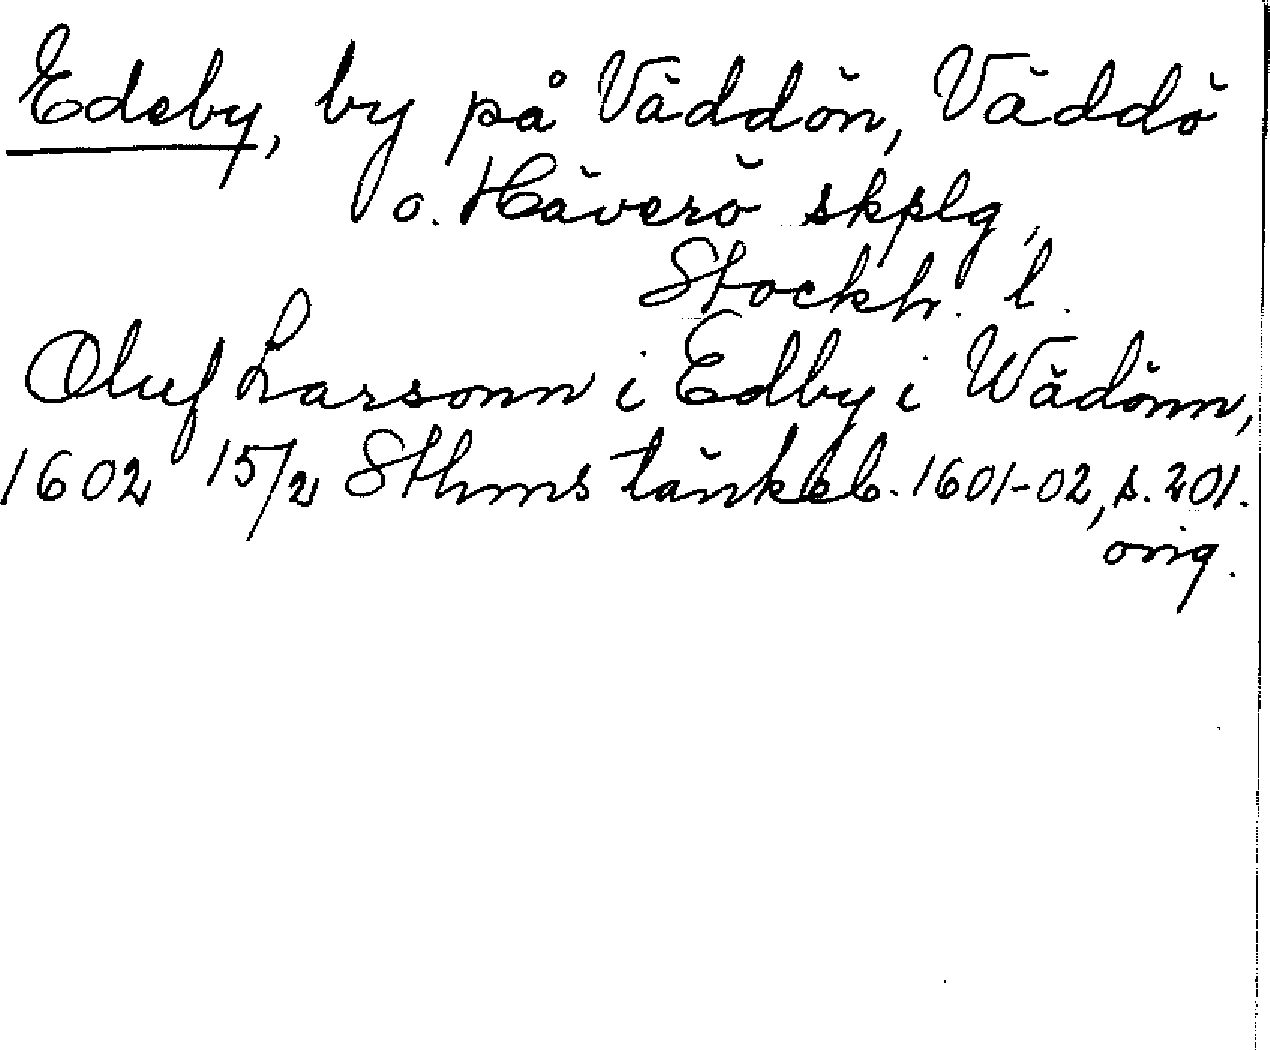 Edeby, by på Väddön, Väddö
o. Häverö skplg,
Stockh. l.
Oluf Larsonn i Edby i Wädönn,
1602 15/2 Sthms tänkeb. 1601-02, s. 201.
orig.